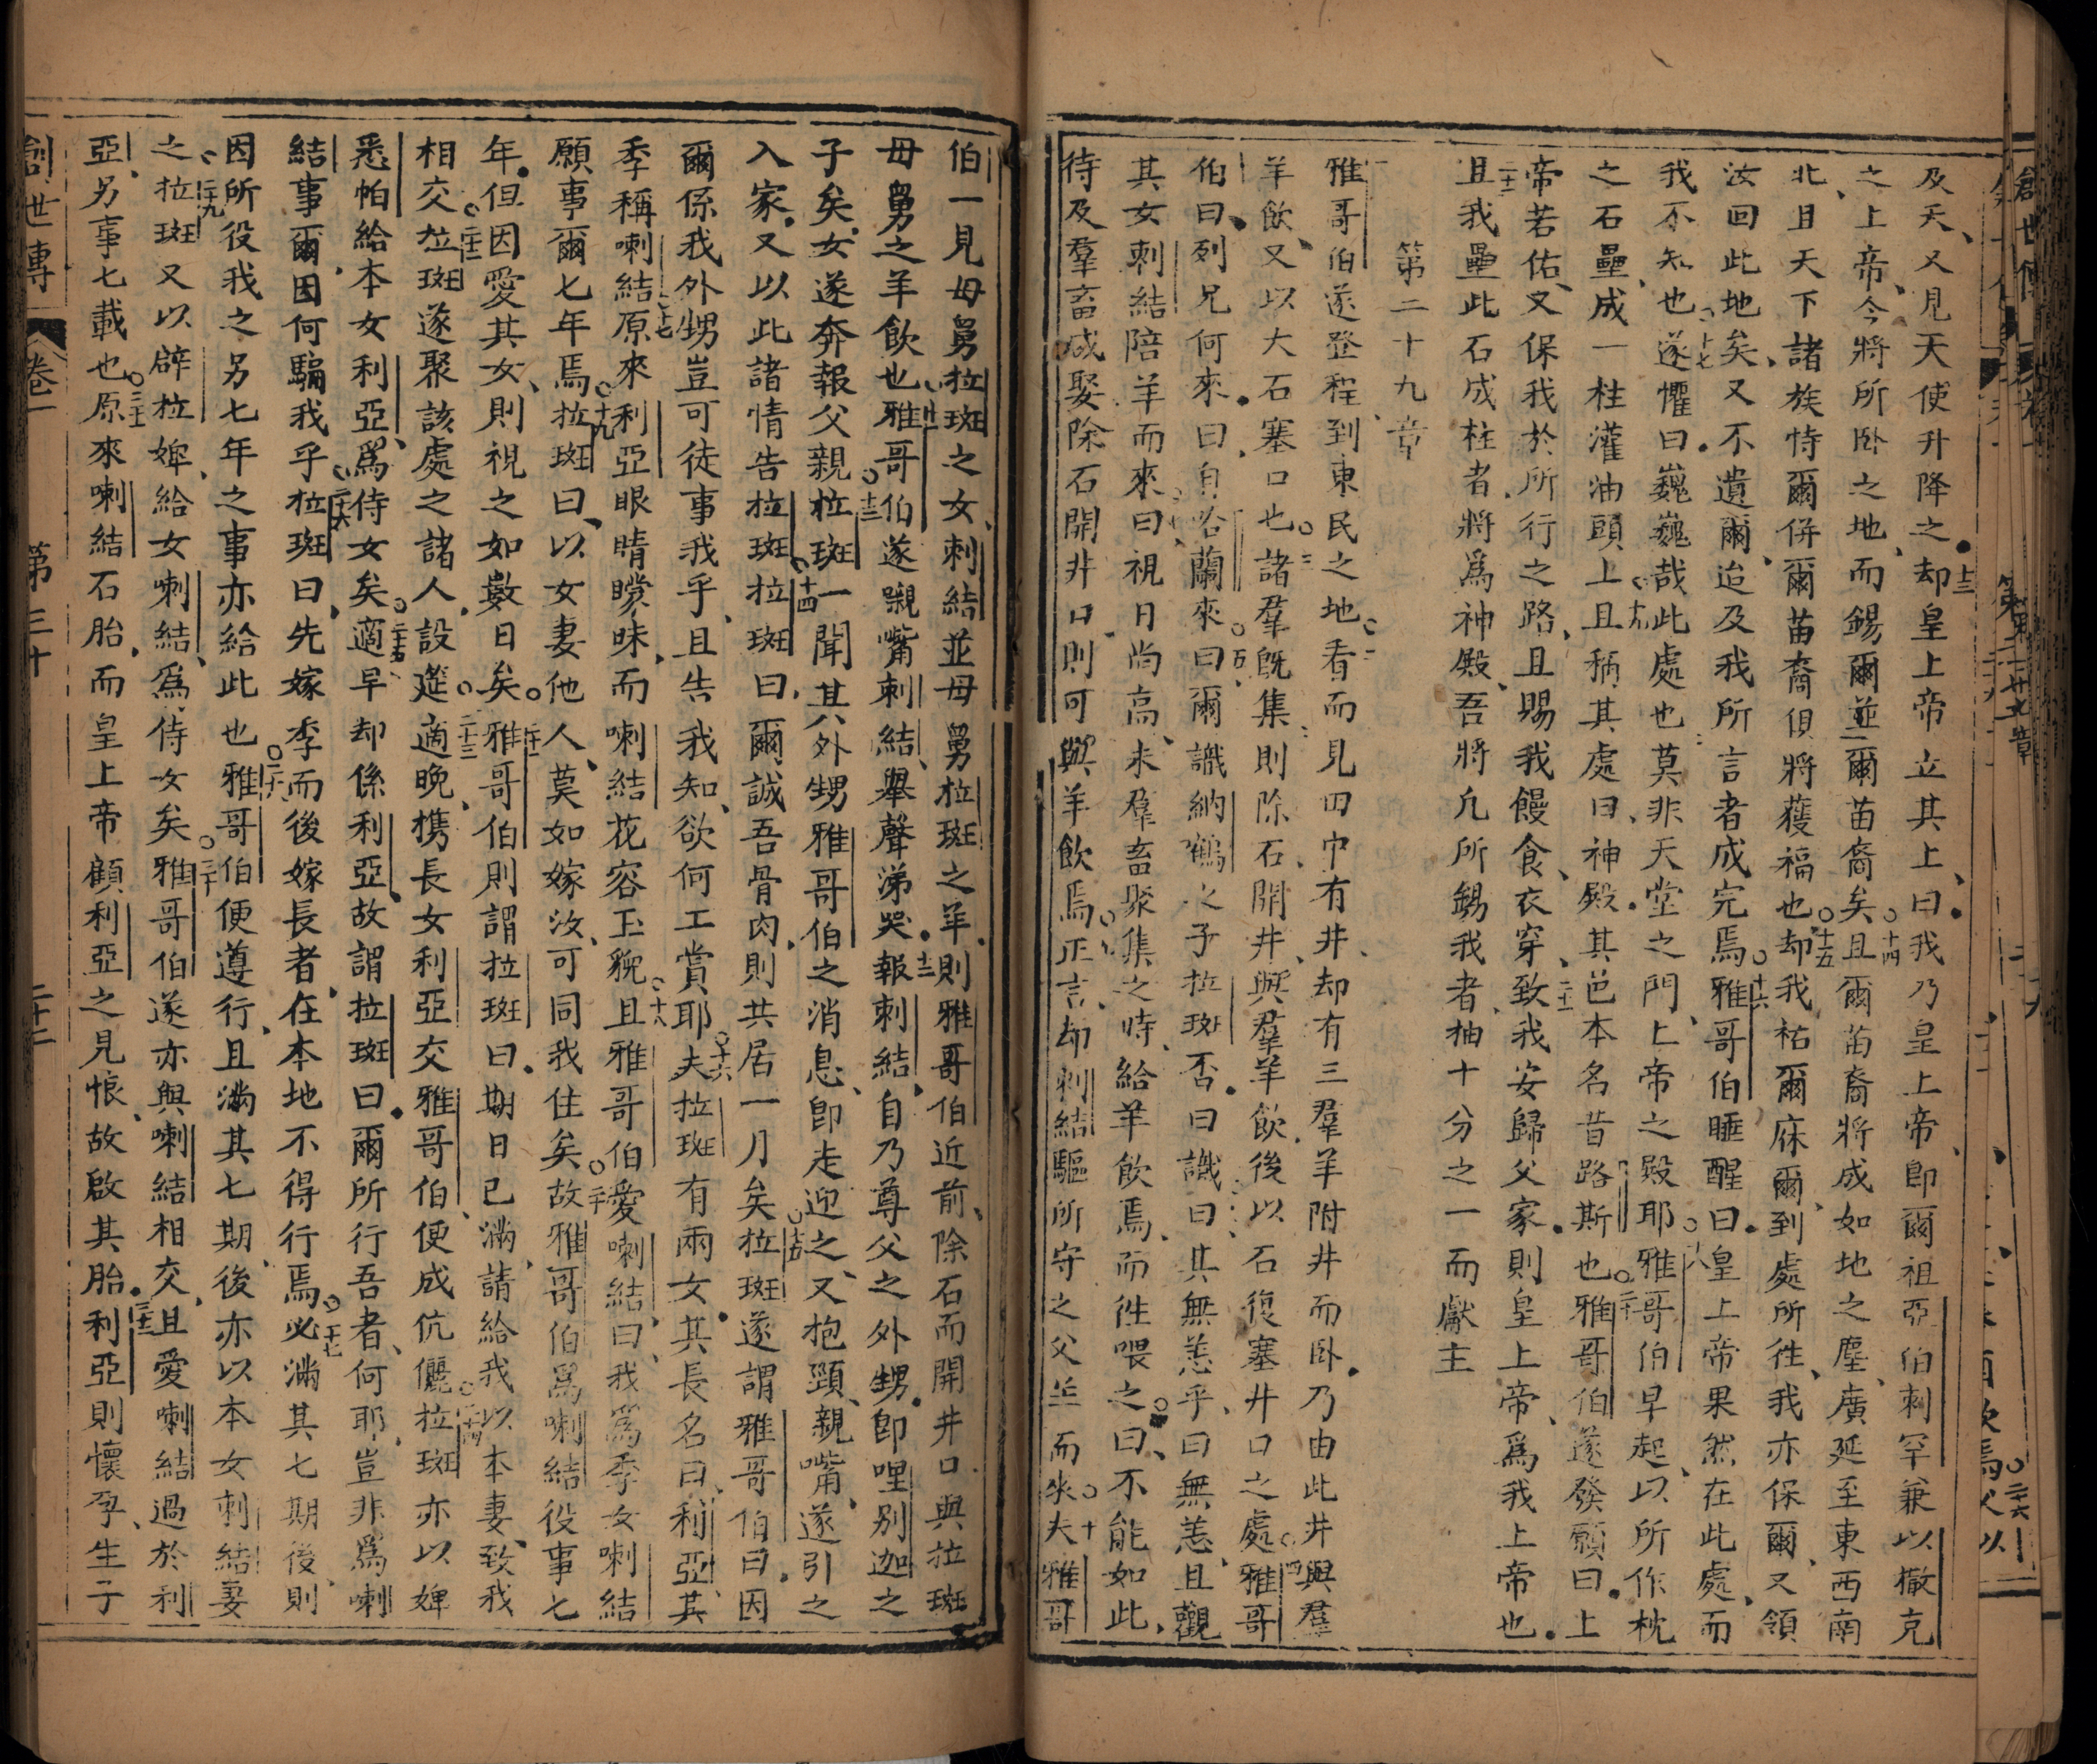 及天、又見天使升降之。十三却皇上帝立其上、曰。我乃皇上帝、即爾祖亞伯剌罕兼以撒克
之上帝、今將所卧之地、而錫爾並爾苗裔矣。十四且爾苗裔將成如地之塵、廣延至東西南
北、且天下諸族恃爾併爾苗裔俱將獲福也。十五却我祐爾庥爾、到處所徃、我亦保爾、又領
汝回此地矣、又不遺爾、迨及我所言者成完焉。十六雅哥伯睡醒曰。皇上帝果然在此處、而
我不知也。十七遂懼曰。巍巍哉此處也、莫非天堂之門、上帝之殿耶。十八雅哥伯早起、以所作枕
之石壘成一柱、灌油頭上、十九且稱其處曰、神殿。其邑本名昔路斯也。二十雅哥伯遂發願曰。上
帝若佑、又保我於所行之路、且賜我饅食、衣穿、二十一致我安歸父家。則皇上帝、爲我上帝也。
二十二且我壘此石成柱者、將爲神殿、吾將凡所錫我者、抽十分之一而獻主
第二十九章
雅哥伯遂登程到東民之地。二看而見田中有井、却有三羣羊附井而卧。乃由此井與羣
羊飲、又以大石塞口也。三諸羣旣集則除石、開井、與羣羊飲、後以石復塞井口之處。四雅哥
伯曰。列兄何來。曰、自咯蘭來。五曰爾識納鶴之子拉斑否。曰識。六曰、其無恙乎、曰無恙、且觀
其女剌結陪羊而來。七曰、視日尚高、未羣畜聚集之時、給羊飲焉、而徃喂之。八曰、不能如此、
待及羣畜咸娶除石開井口、則可與羊飲焉。九正言、却剌結驅所守之父羊而來。十夫雅哥
伯一見母舅拉斑之女、剌結並母舅拉斑之羊、則雅哥伯近前、除石而開井口與拉斑
母舅之羊飲也、十一雅哥伯遂嚫嘴剌結、舉聲涕哭。十二報剌結、自乃尊父之外甥。即哩别迦之
子矣。女遂奔報父親。十三拉斑一聞其外甥雅哥伯之消息、即走迎之、又抱頸、親嘴、遂引之
入家。又以此諸情告拉斑、十四拉斑曰、爾誠吾骨肉、則共居一月矣。十五拉斑遂謂雅哥伯曰。因
爾係我外甥豈可徒事我乎、且告我知、欲何工賞耶。十六夫拉斑有兩女。其長名曰、利亞、其
季稱喇結、十七原來利亞眼睛矇昧、而喇結花容玉貌。十八且雅哥伯愛喇結、曰、我爲季女喇結
願事爾七年焉。十九拉斑曰、以女妻他人、莫如嫁汝、可同我住矣。二十故雅哥伯爲喇結役事七
年。但因愛其女、則視之如數日矣。二十一雅哥伯則謂拉斑曰。期日已滿、請給我以本妻、致我
相交。二十二拉斑遂聚該處之諸人、設筵。二十三適晚、携長女利亞交雅哥伯、便成伉儷。二十四拉斑亦以婢
悉帕給本女利亞、爲侍女矣。二十五適早却係利亞、故謂拉斑曰。爾所行吾者、何耶、豈非爲喇
結事爾、因何騙我乎、二十六拉斑曰、先嫁季而後嫁長者、在本地不得行焉。二十七必滿其七期後、則
因所役我之另七年之事亦給此也。二十八雅哥伯便遵行、且滿其七期、後亦以本女剌結妻
之、二十九拉斑又以辟拉婢、給女喇結、爲侍女矣。三十雅哥伯遂亦與喇結相交、且愛喇結過於利
亞、另事七載也。三十一原來喇結石胎、而皇上帝顧利亞之見恨、故啟其胎。三十二利亞則懷孕、生子
創世傳 卷一 第三十 二十二